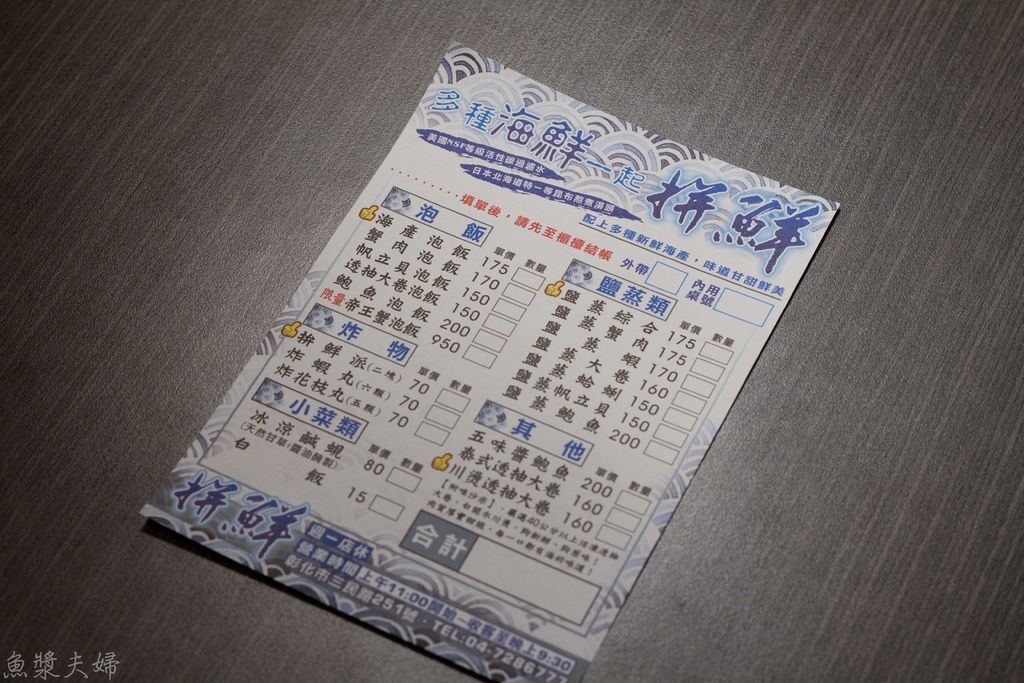 多種海鮮一起拚鮮
美國NSF等級活性碳過濾水
日本北海道特一等昆布熬煮湯頭
配上多種新鮮海產，味道甘甜鮮美
填單後，請先至櫃檯結帳
外帶
內用桌號
泡飯 單價 數量
海產泡飯 175
蟹肉泡飯 170
帆立貝泡飯 150
透抽大卷泡飯 150
鮑魚泡飯 200
限量帝王蟹泡飯 950
炸物 單價 數量
拚鮮派(二塊) 70
炸蝦丸(六顆) 70
炸花枝丸(五顆) 70
小菜類 單價 數量
冰涼鹹蜆 80
(天然甘草、醬油醃製)
白飯 15
鹽蒸類 單價 數量
鹽蒸綜合 175
鹽蒸蟹肉 175
鹽蒸蝦 170
鹽蒸大卷 160
鹽蒸蛤蜊 150
鹽蒸帆立貝 150
鹽蒸鮑魚 200
其他 單價 數量
五味醬鮑魚 200
泰式透抽大卷 160
川燙透抽大卷 160
合計
拚鮮
週一店休
營業時間上午11:00開始－收客至晚上9:30
彰化市三民路251號．TEL:04-7286777
魚漿夫婦